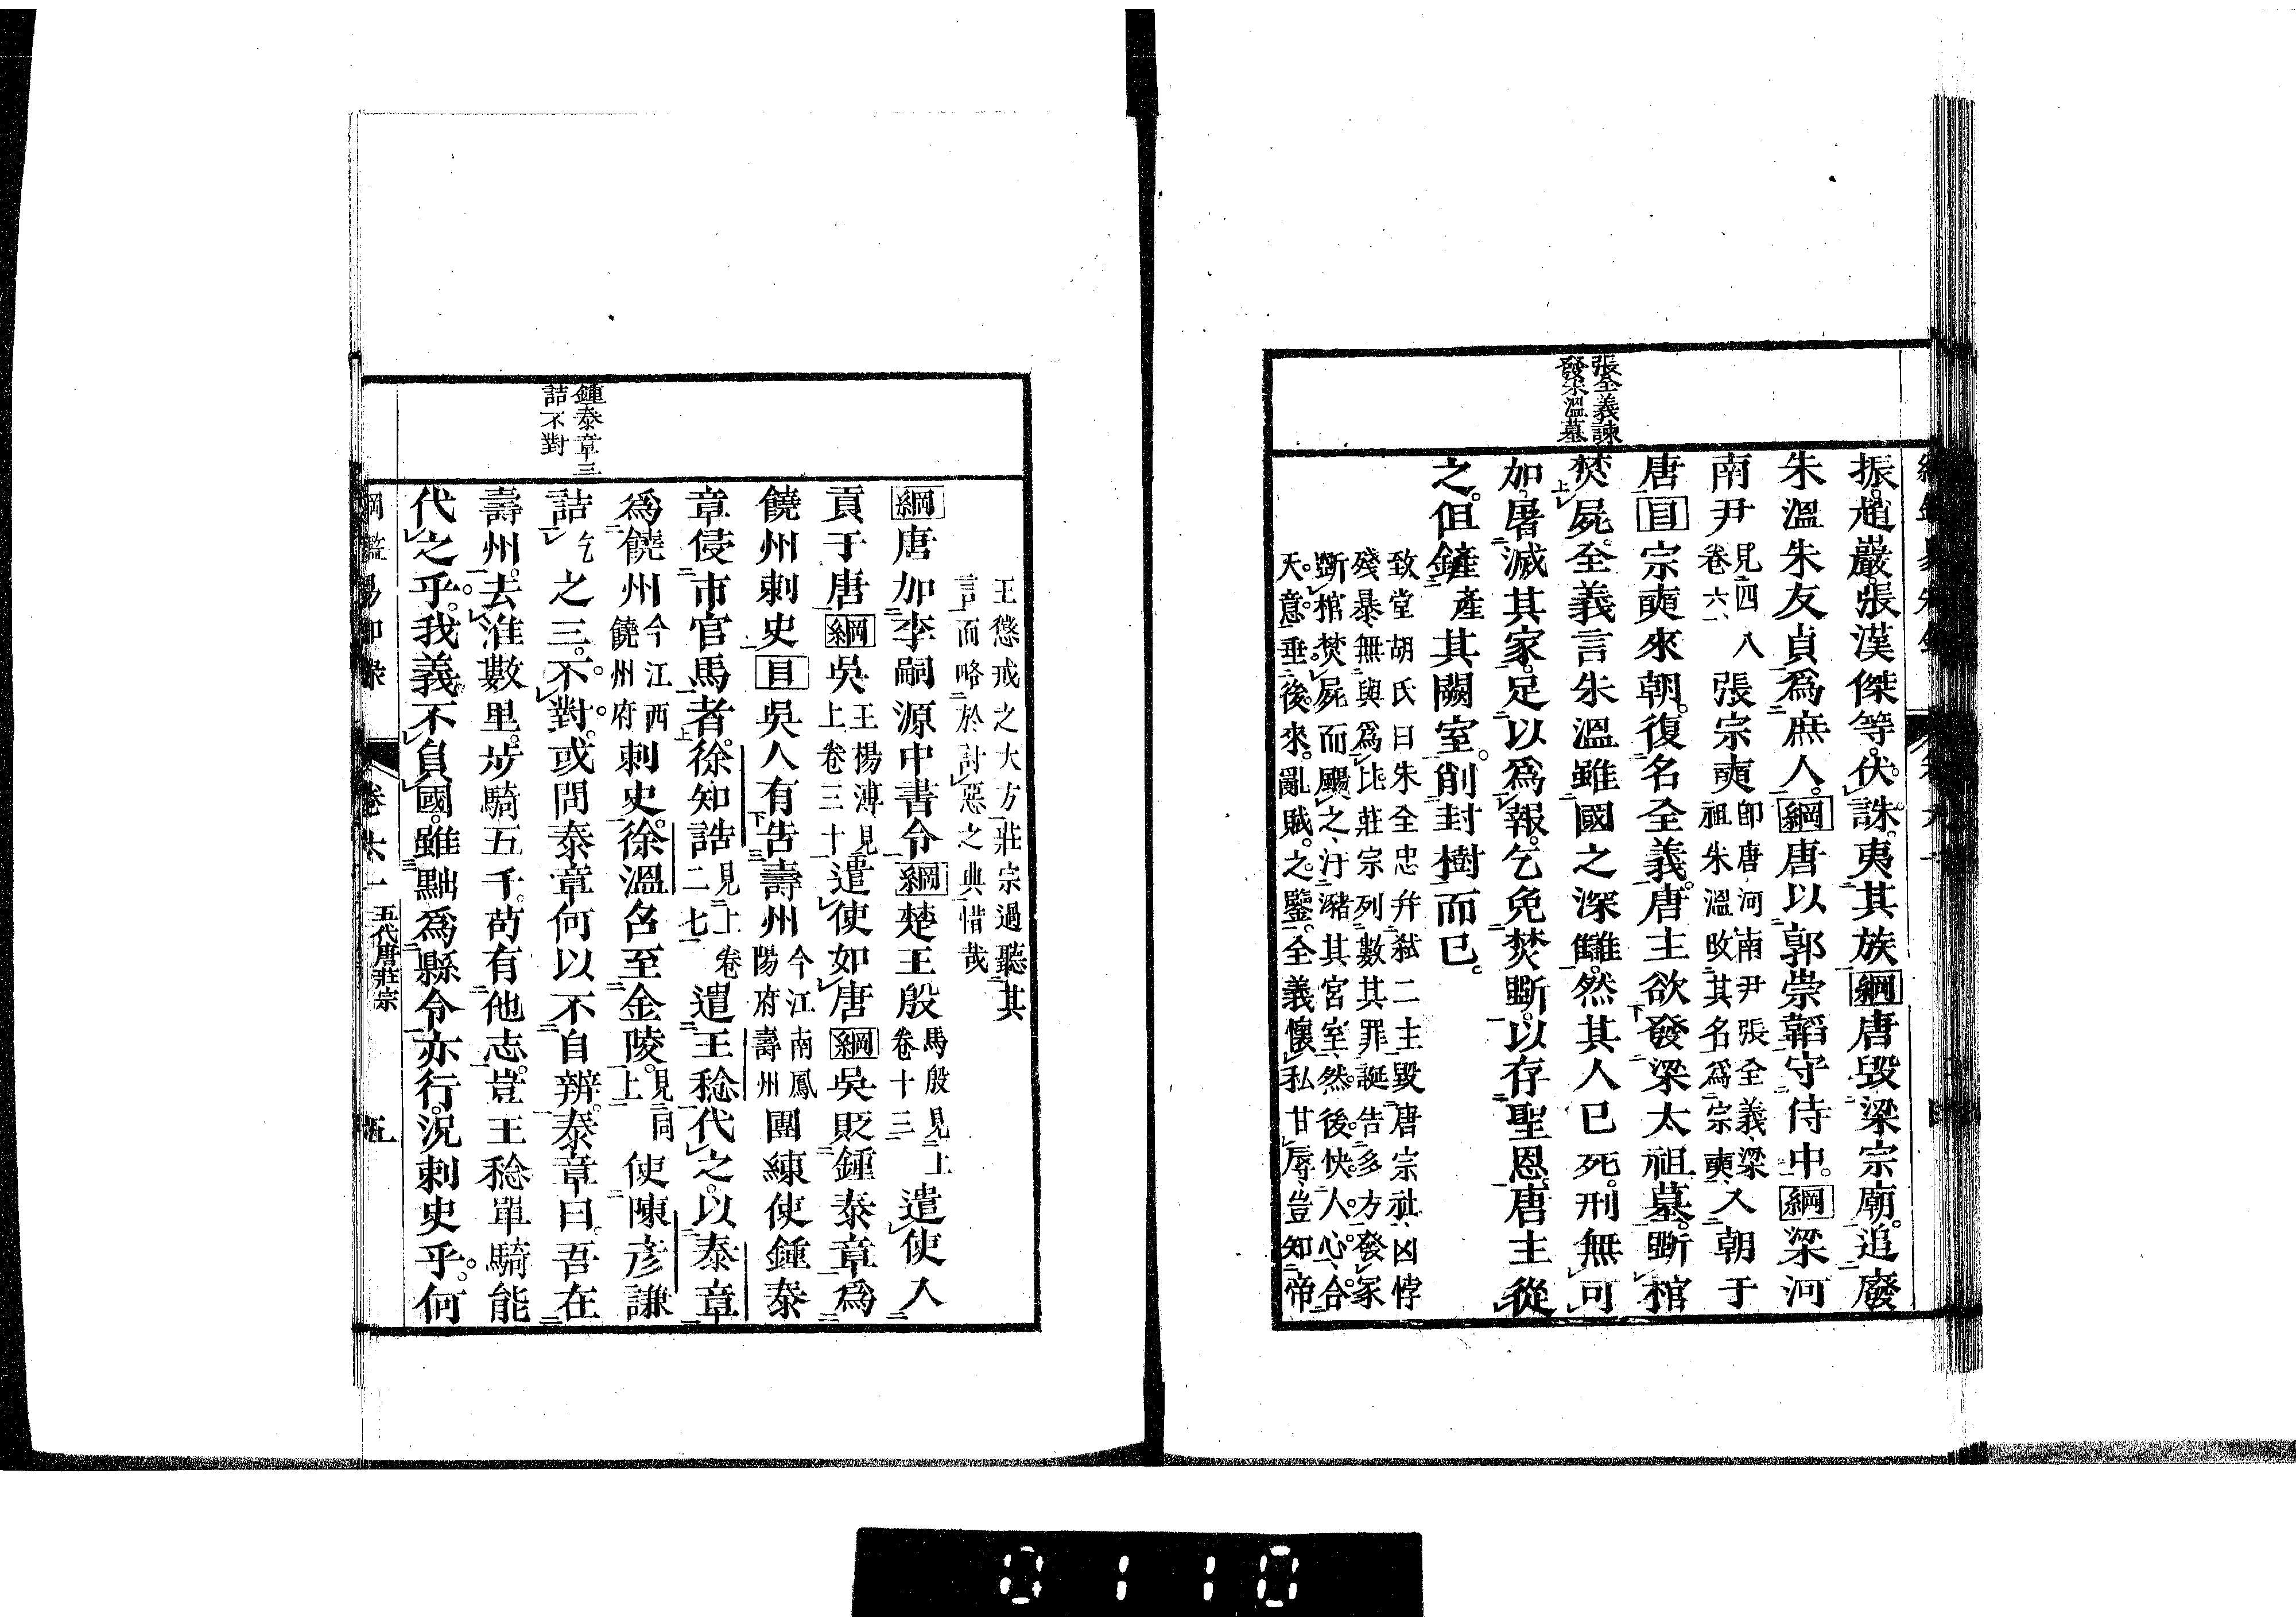 張全義諫
發朱溫墓
振。趙巖。張漢傑等。伏誅。夷其族綱唐毀梁宗廟。追廢
朱溫朱友貞爲庶人。綱唐以郭崇韜守侍中。綱梁河
南尹見四卷六八張宗奭卽唐河南尹張全義、梁祖朱溫改其名爲宗奭、入朝于
唐目宗奭來朝。復名全義。唐主欲發梁太祖墓。斲棺
焚屍。全義言朱溫雖國之深讎。然其人已死。刑無可
加。屠滅其家。足以爲報。乞免焚斲。以存聖恩。唐主從
之。但鏟產其闕室。削封樹而已。
致堂胡氏曰朱全忠弁弑二主毀唐宗祉、凶悖
殘暴、無與爲比莊宗列數其罪誕告多方發冢
斷棺焚屍而颺之、汙瀦其宮室、然後快人心、合
天意。垂後來。亂賊之鑒。全義懷私甘辱、豈知帝
鍾泰章三
詰不對
王懲戒之大方莊宗過聽其
言而略於討惡之典惜哉
綱唐加李嗣源中書令綱楚王殷馬殷見上卷十三遣使入
貢于唐綱吳王楊溥見上卷三十遣使如唐綱吳貶鍾泰章爲
饒州刺史目吳人有告壽州今江南鳳陽府壽州團練使鍾泰
章侵市官馬者。徐知誥見上卷二七遣王稔代之。以泰章
爲饒州今江西饒州府刺史。徐溫召至金陵。見同上使陳彥謙
詰乞之三。不對。或問泰章何以不自辨。泰章曰。吾在
壽州。去淮數里。步騎五千。苟有他志。豈王稔單騎能
代之乎。我義不負國。雖黜爲縣令亦行。況刺史乎。何
綱鑑易知錄 卷六一 五代唐莊宗 五